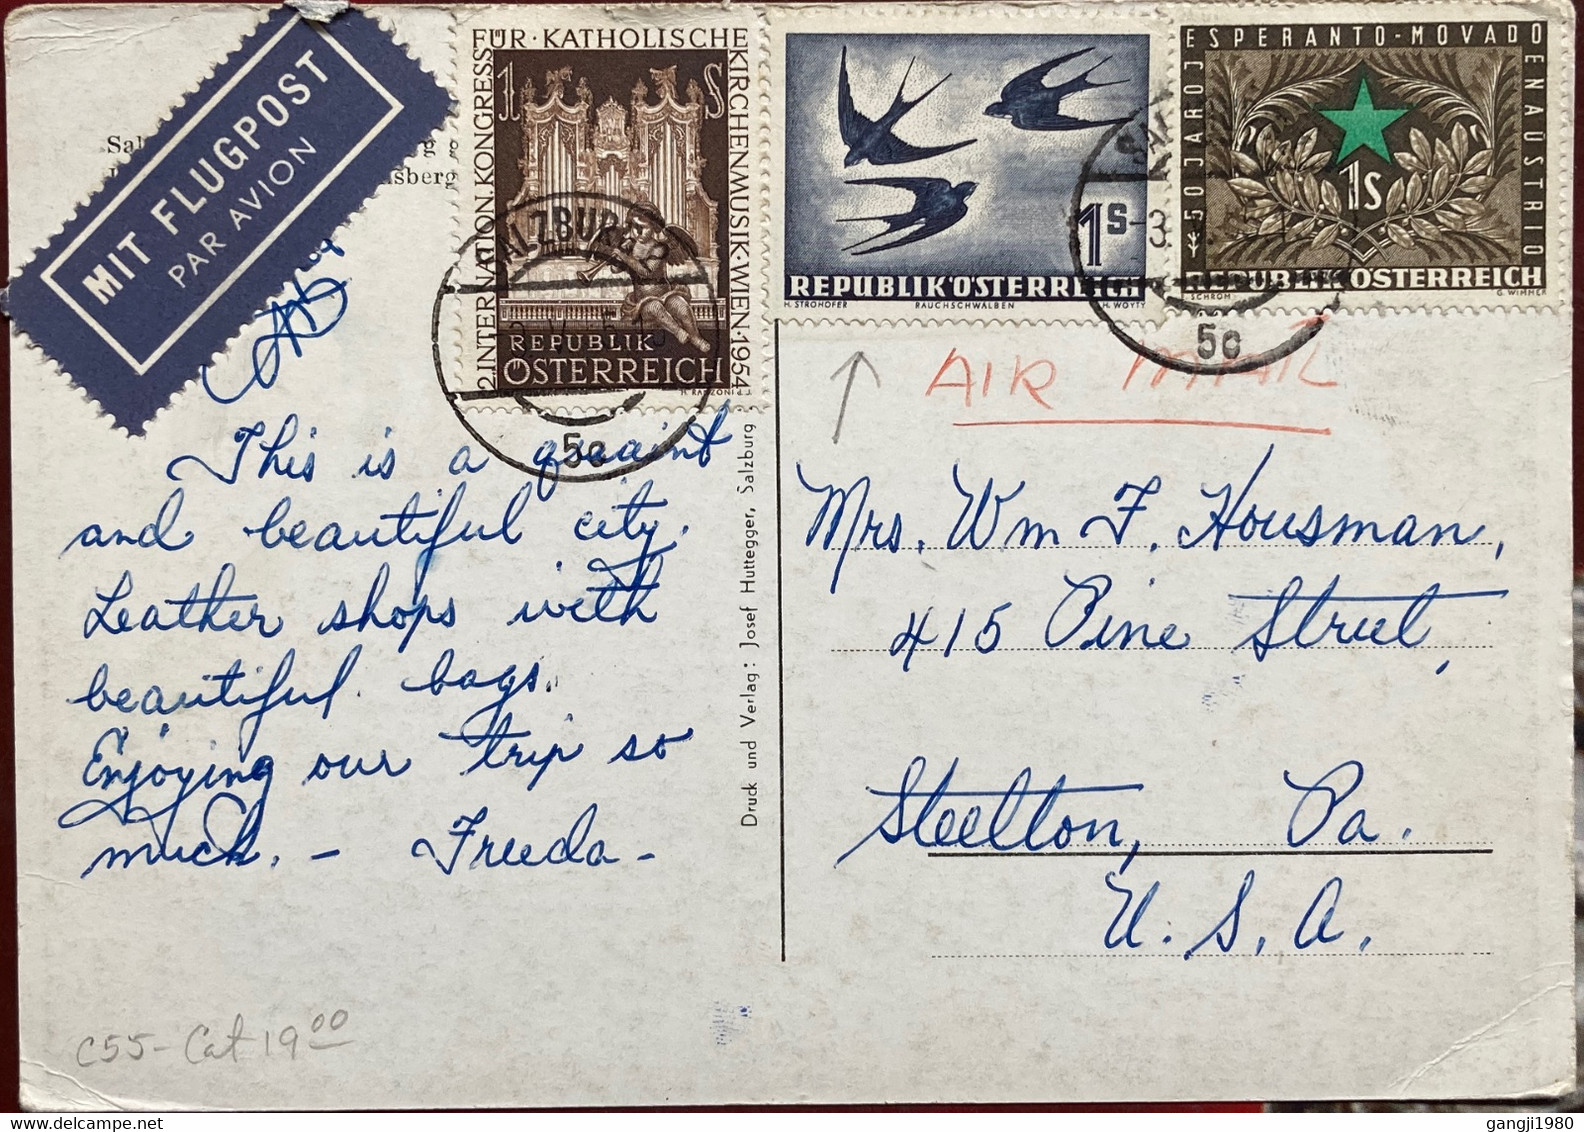 MIT FLUGPOST
PAR AVION
Sal
nsberg
2.INTERNATION.KONGRESS
FÜR·KATHOLISCHE
KIRCHENMUSIK·WIEN·1954
1 S
REPUBLIK
ÖSTERREICH
SALZBURG 2
5c
1S
REPUBLIK ÖSTERREICH
H. STROHOFER RAUCHSCHWALBEN H. WOYTY
50 JAROJ
ESPERANTO-MOVADO
EN AŬSTRIO
1S
REPUBLIK ÖSTERREICH
SCHROM G. WIMMER
5c
AIR MAIL
This is a quaint
and beautiful city.
Leather shops with
beautiful bags.
Enjoying our trip so
much. - Freeda -
Druck und Verlag: Josef Huttegger, Salzburg
Mrs. Wm F. Housman,
415 Pine Street,
Steelton, Pa.
U. S. A.
C55 - Cat 19 00
gangji1980